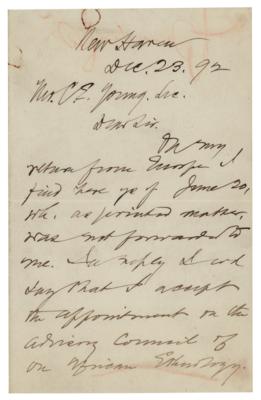 New Haven
Dec. 23. 92
Mr. C E. Young. Sec.
Dear Sir.
On my
return from Europe I
find here yrs of June 20,
wh. as printed matter,
was not forwarded to
me. In reply I wd
say that I accept
the appointment on the
advisory Council of
on African Ethnology.